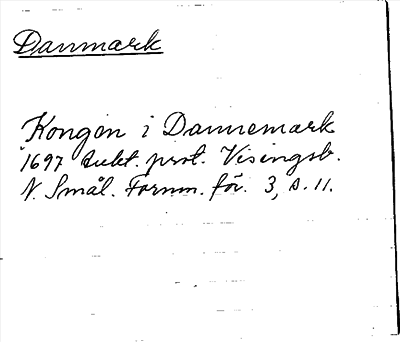 Danmark
Kongen i Dannemark
1697 Aukt. prot. Visingsb.
N. Smål. Fornm. för. 3, s. 11.